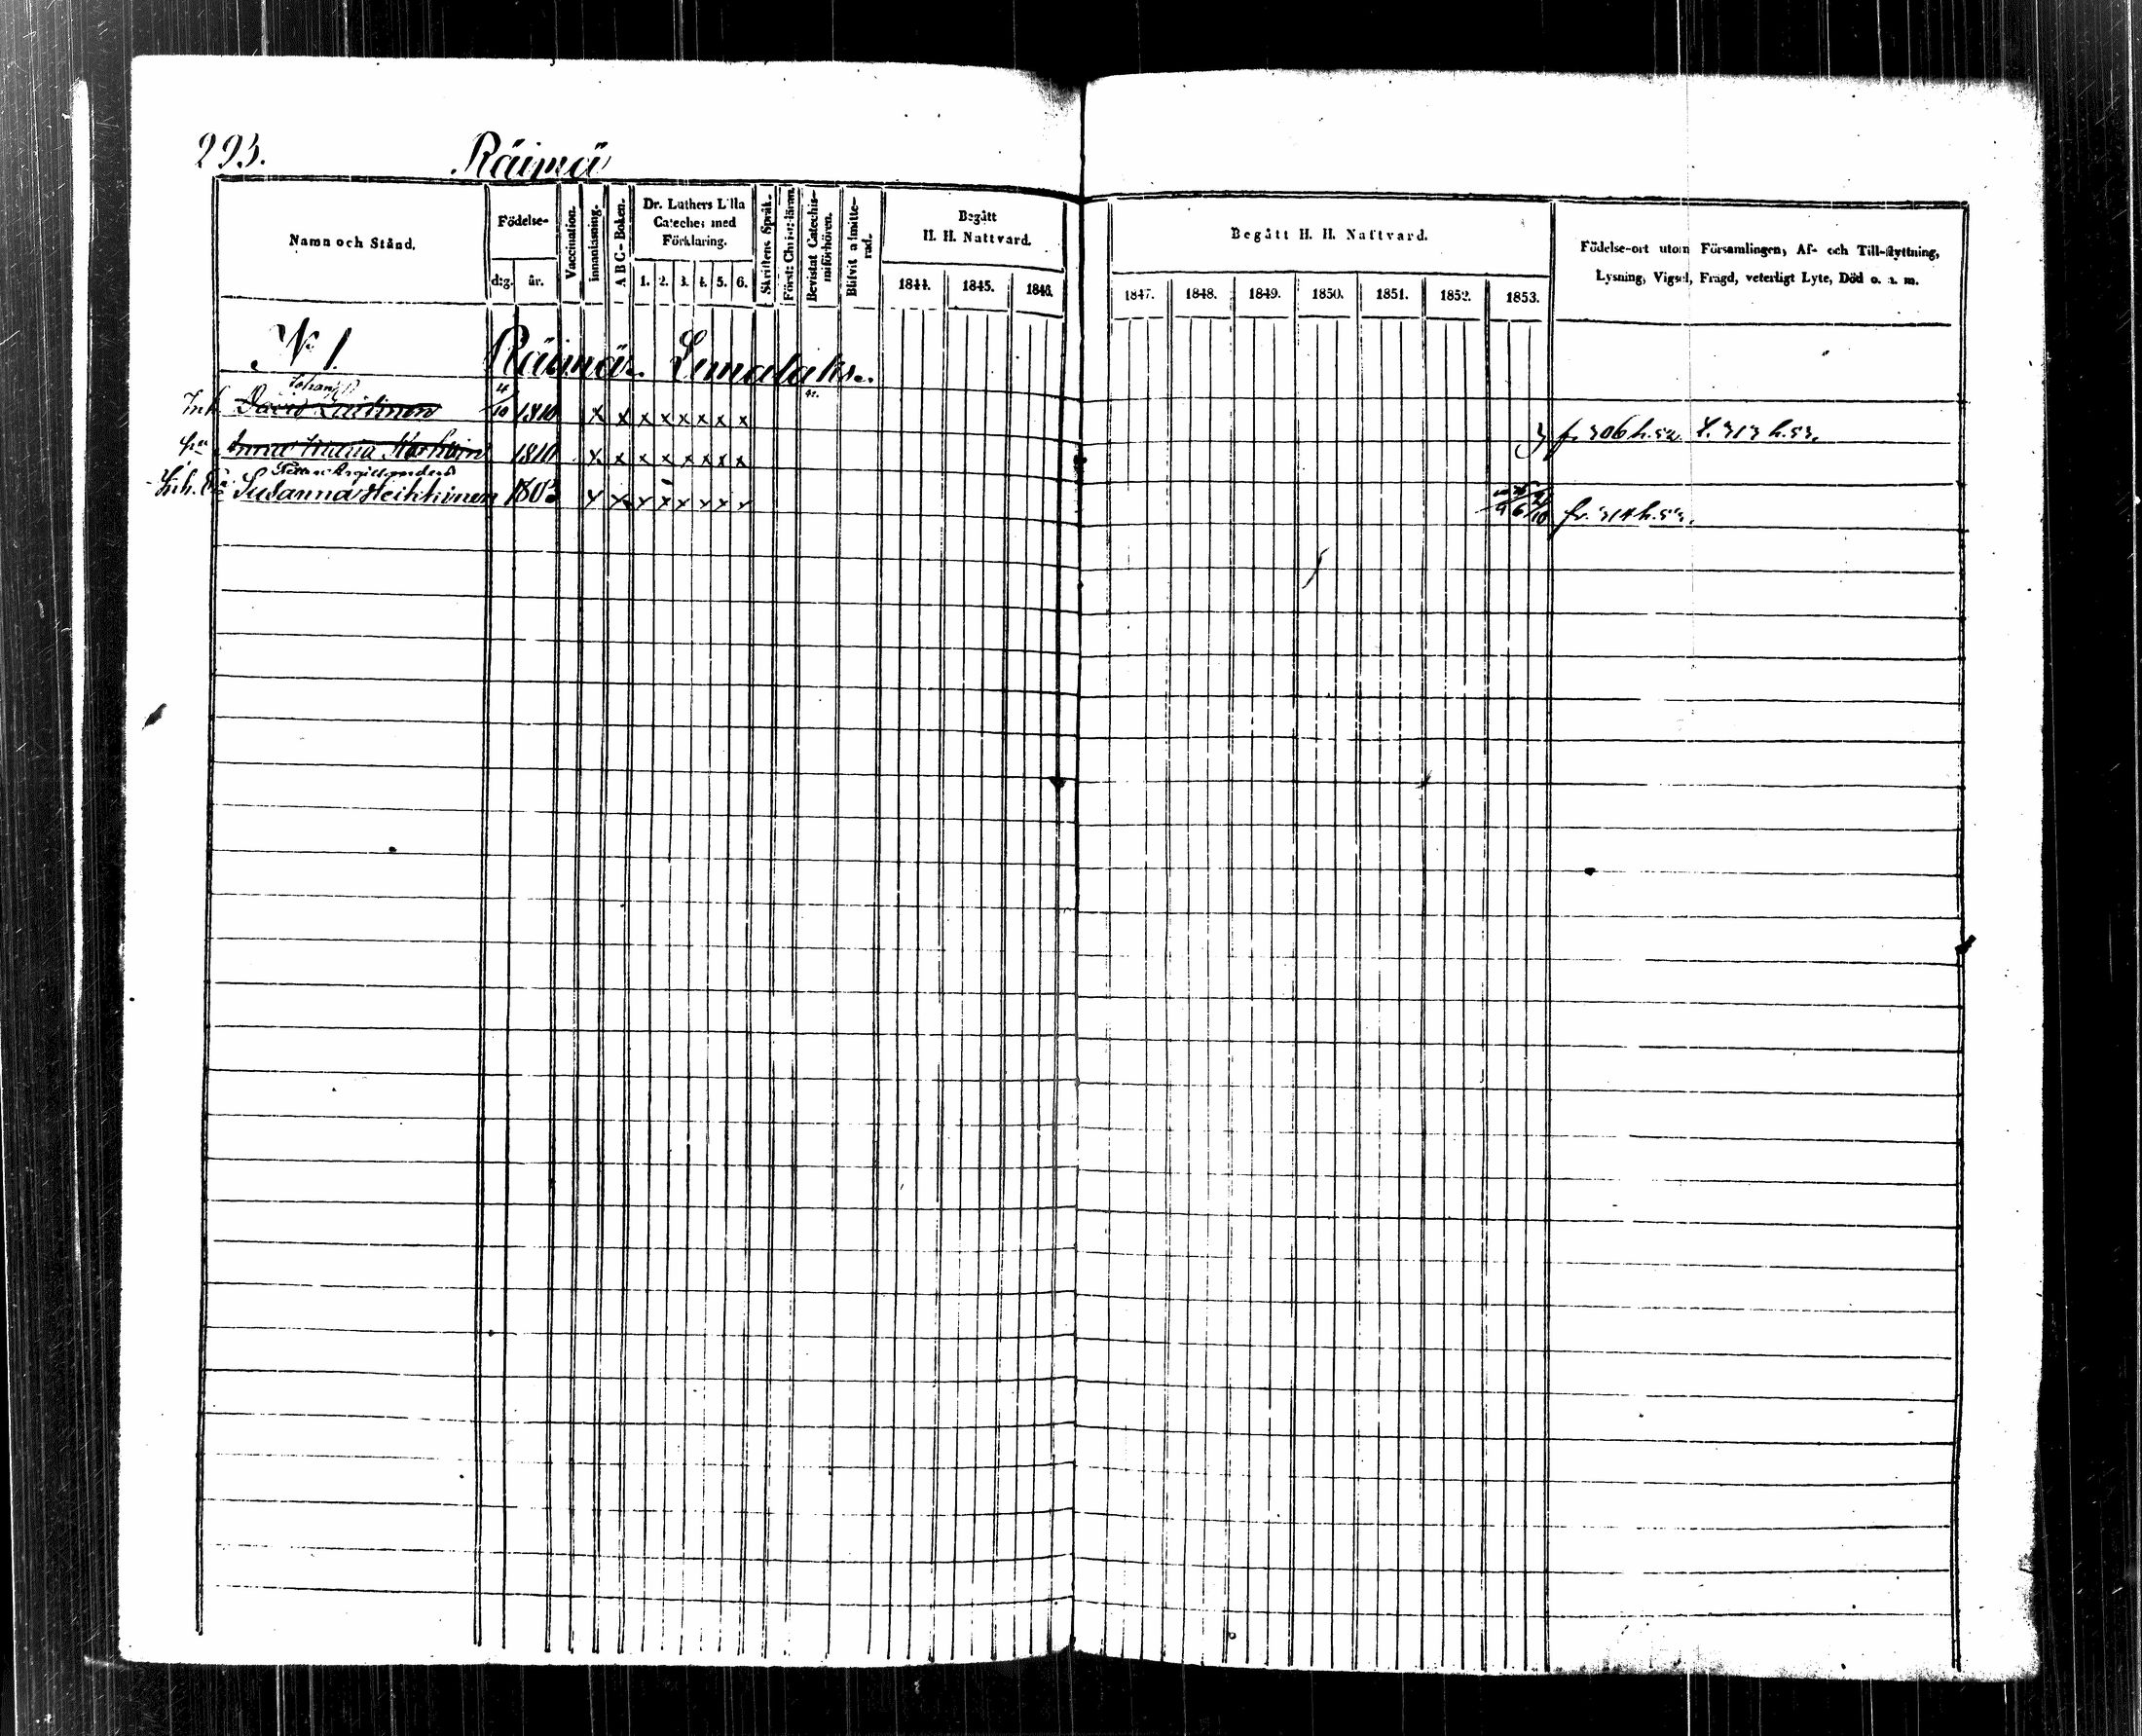 293.
Räimä
Namn och Stånd.
Födelse-
dag.
år.
Vaccination.
Innanläsning.
A B C-Boken.
Dr. Luthers Lilla Cateches med Förklaring.
1. 2. 3. 4. 5. 6.
Skriftens Språk.
Först: Christ:läran.
Bevistat Catechismiförhören.
Blifvit admitterad.
Begått H. H. Nattvard.
1844. 1845. 1846.
Begått H. H. Nattvard.
1847. 1848. 1849. 1850. 1851. 1852. 1853.
Födelse-ort utom Församlingen, Af- och Till-flyttning,
Lysning, Vigsel, Frägd, veterligt Lyte, Död o. s. m.
N 1. Räimä Lamalaks.
Johans
Inh. David Laitinen 4/10 1810 x x x x x x x x fr. 306 h. 52. t. 313 h. 53.
hu Anna 1810 x x x x x x x x
Inh. Susanna Heikkinen 1803 x x x x x x x x fr. 314 h. 53.